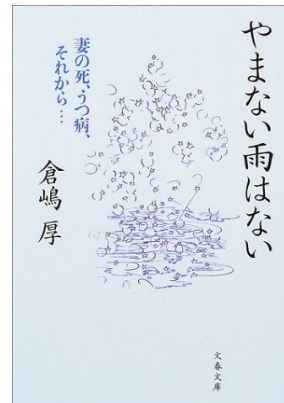 やまない雨はない
妻の死、うつ病、
それから…
倉嶋 厚
文春文庫